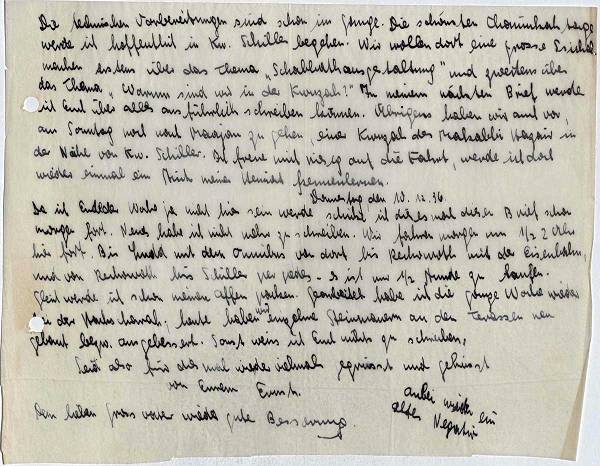 Die technischen Vorbereitungen sind schon im Gange. Die schönsten Chanukah tage
werde ich hoffentlich in Kw. Schiller begehen. Wir wollen dort eine grosse Sichah
machen erstens über das Thema „Schabbathausgestaltung" und zweitens über
das Thema „Warum sind wir in der Kwuzah?" In meinem nächsten Brief werde
ich Euch über alles ausführlich schreiben können. Übrigens haben wir auch vor,
am Sonntag noch nach zu gehen, einer Kwuzah des Makkabi Hazair in
der Nähe von Kw. Schiller. Ich freue mich riesig auf die Fahrt, werde ich doch
wieder einmal ein Stück meiner Heimat kennenlernen.
Donnerstag den 10.12.36.
Da ich Ende der Woche ja nicht hier sein werde schicke ich diesen Brief schon
morgen fort. Neues habe ich nicht mehr zu schreiben. Wir fahren morgen um 1/2 2 Uhr
hier fort. Bis mit dem Omnibus von dort bis Rechowoth mit der Eisenbahn,
und von Rechowoth bis Schiller per pedes - es ist nur 1/2 Stunde zu laufen.
Gleich werde ich schon meinen Affen packen. Gearbeitet habe ich die ganze Woche wieder
in der heute haben wir einzelne Steinmauern an den Terassen neu
gebaut bezw. ausgebessert. Sonst weiss ich Euch nichts zu schreiben,
Seid also für dies mal wieder vielmals gegrüsst und geküsst
von Eurem Ernst.
Dem lieben gute Besserung.
anbei ein
altes Negativ